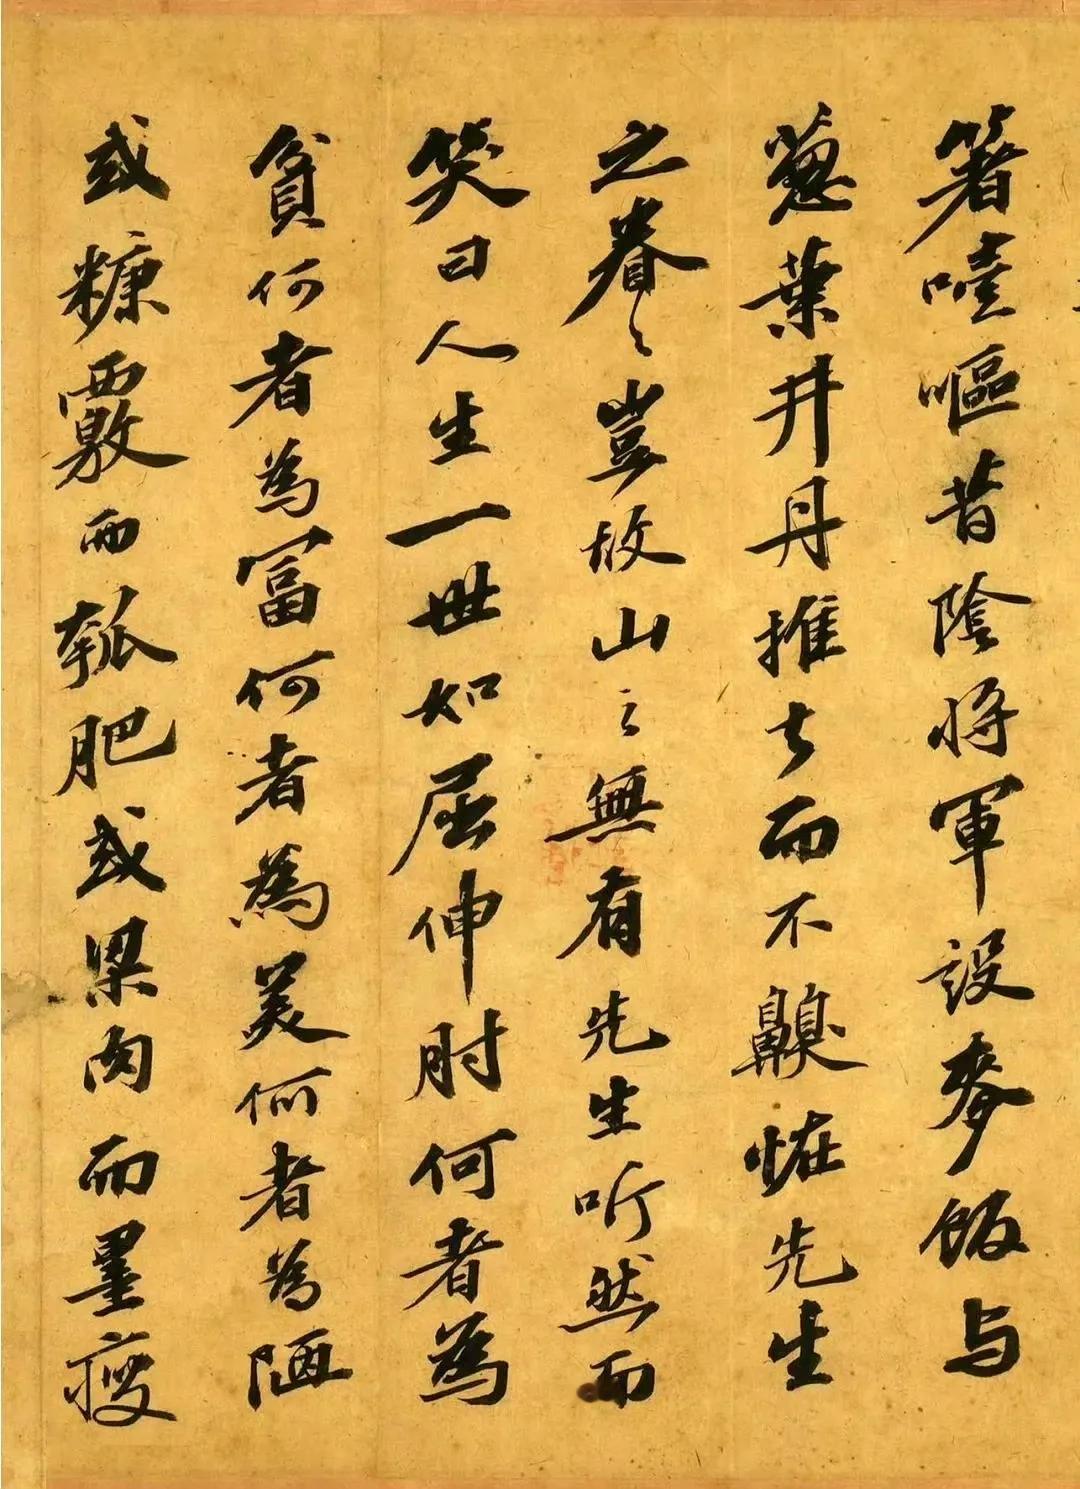 箸噎嘔昔陰將軍設麥飯与
葱葉井丹推去而不齅恠先生
之眷〻豈故山之無有先生听然而
笑曰人生一世如屈伸肘何者為
貧何者為富何者為美何者為陋
或糠覈而瓠肥或粱肉而墨瘦